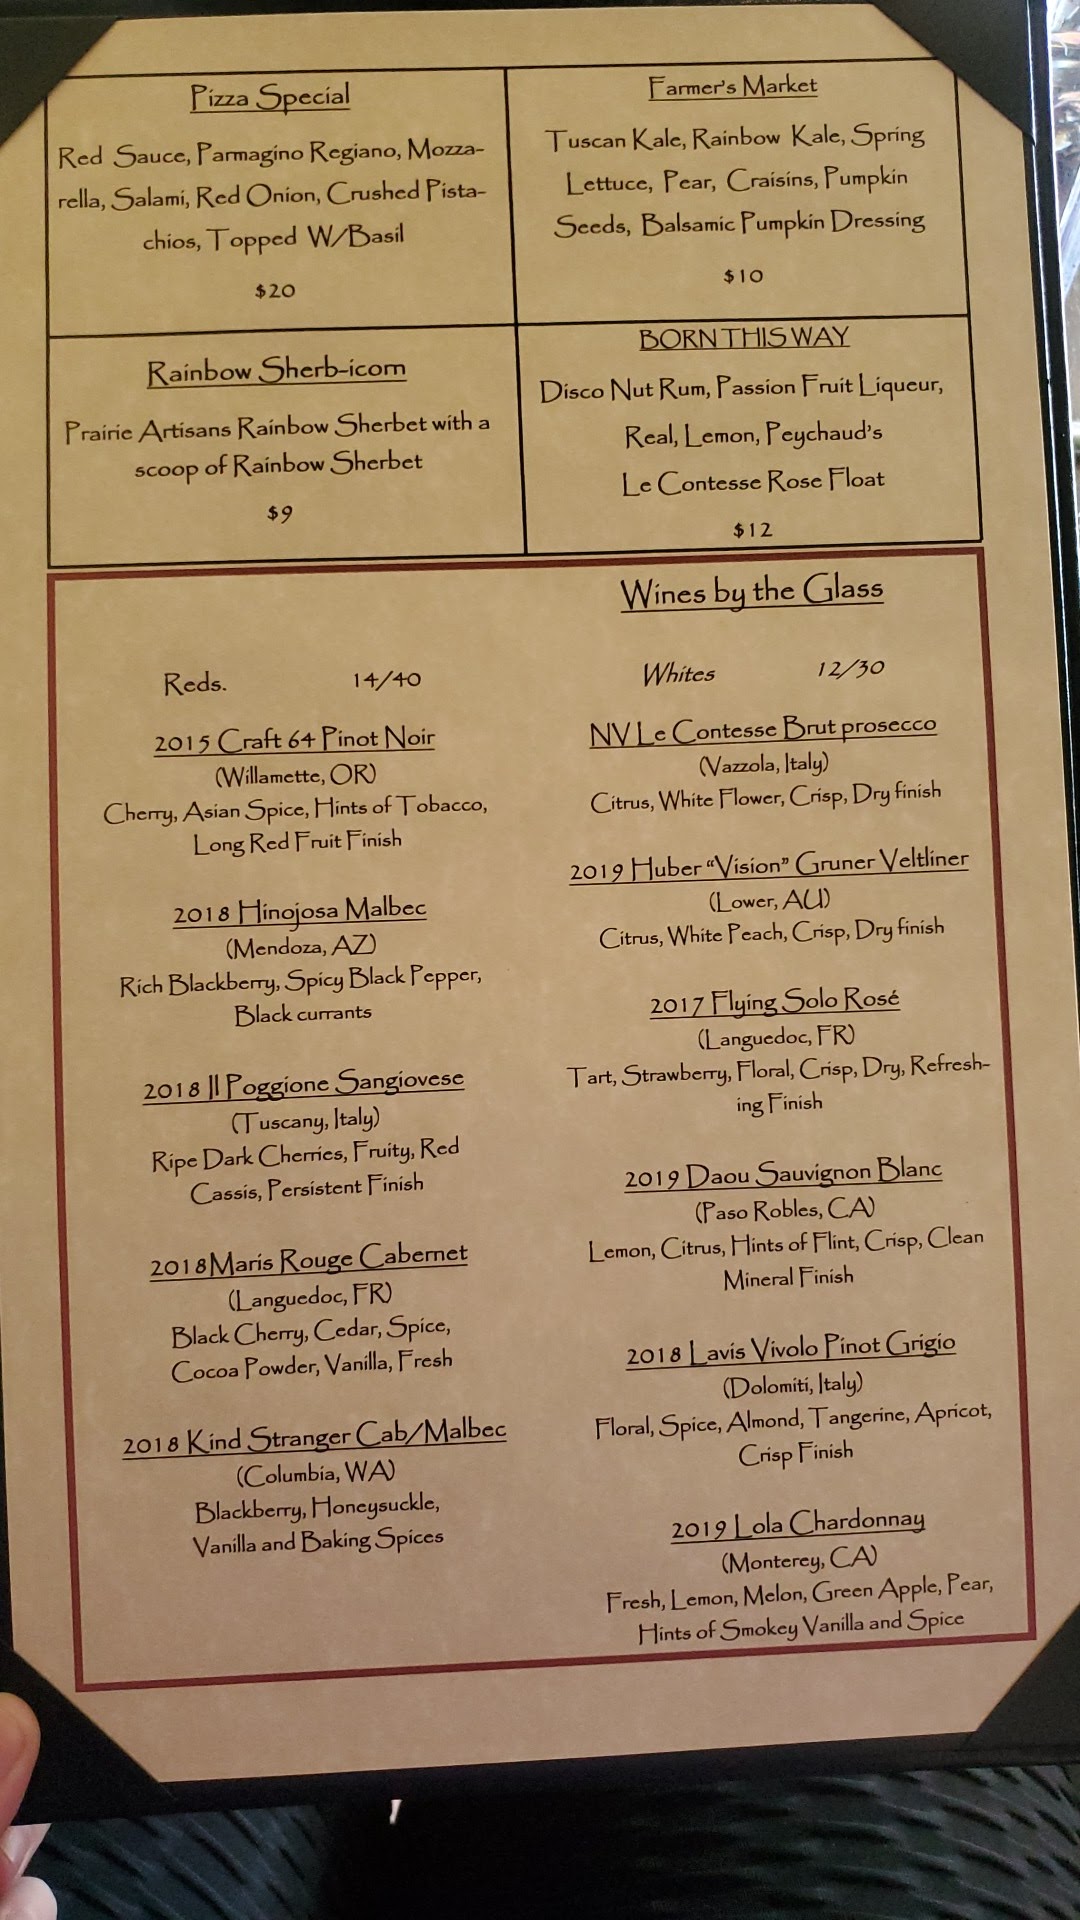 Pizza Special
Red Sauce, Parmagino Regiano, Mozza-
rella, Salami, Red Onion, Crushed Pista-
chios, Topped W/Basil
$20
Farmer's Market
Tuscan Kale, Rainbow Kale, Spring
Lettuce, Pear, Craisins, Pumpkin
Seeds, Balsamic Pumpkin Dressing
$10
Rainbow Sherb-icorn
Prairie Artisans Rainbow Sherbet with a
scoop of Rainbow Sherbet
$9
BORN THIS WAY
Disco Nut Rum, Passion Fruit Liqueur,
Real, Lemon, Peychaud's
Le Contesse Rose Float
$12
Wines by the Glass
Reds. 14/40
2015 Craft 64 Pinot Noir
(Willamette, OR)
Cherry, Asian Spice, Hints of Tobacco,
Long Red Fruit Finish
2018 Hinojosa Malbec
(Mendoza, AZ)
Rich Blackberry, Spicy Black Pepper,
Black currants
2018 Il Poggione Sangiovese
(Tuscany, Italy)
Ripe Dark Cherries, Fruity, Red
Cassis, Persistent Finish
2018Maris Rouge Cabernet
(Languedoc, FR)
Black Cherry, Cedar, Spice,
Cocoa Powder, Vanilla, Fresh
2018 Kind Stranger Cab/Malbec
(Columbia, WA)
Blackberry, Honeysuckle,
Vanilla and Baking Spices
Whites 12/30
NV Le Contesse Brut prosecco
(Vazzola, Italy)
Citrus, White Flower, Crisp, Dry finish
2019 Huber "Vision" Gruner Veltliner
(Lower, AU)
Citrus, White Peach, Crisp, Dry finish
2017 Flying Solo Rosé
(Languedoc, FR)
Tart, Strawberry, Floral, Crisp, Dry, Refresh-
ing Finish
2019 Daou Sauvignon Blanc
(Paso Robles, CA)
Lemon, Citrus, Hints of Flint, Crisp, Clean
Mineral Finish
2018 Lavis Vivolo Pinot Grigio
(Dolomiti, Italy)
Floral, Spice, Almond, Tangerine, Apricot,
Crisp Finish
2019 Lola Chardonnay
(Monterey, CA)
Fresh, Lemon, Melon, Green Apple, Pear,
Hints of Smokey Vanilla and Spice